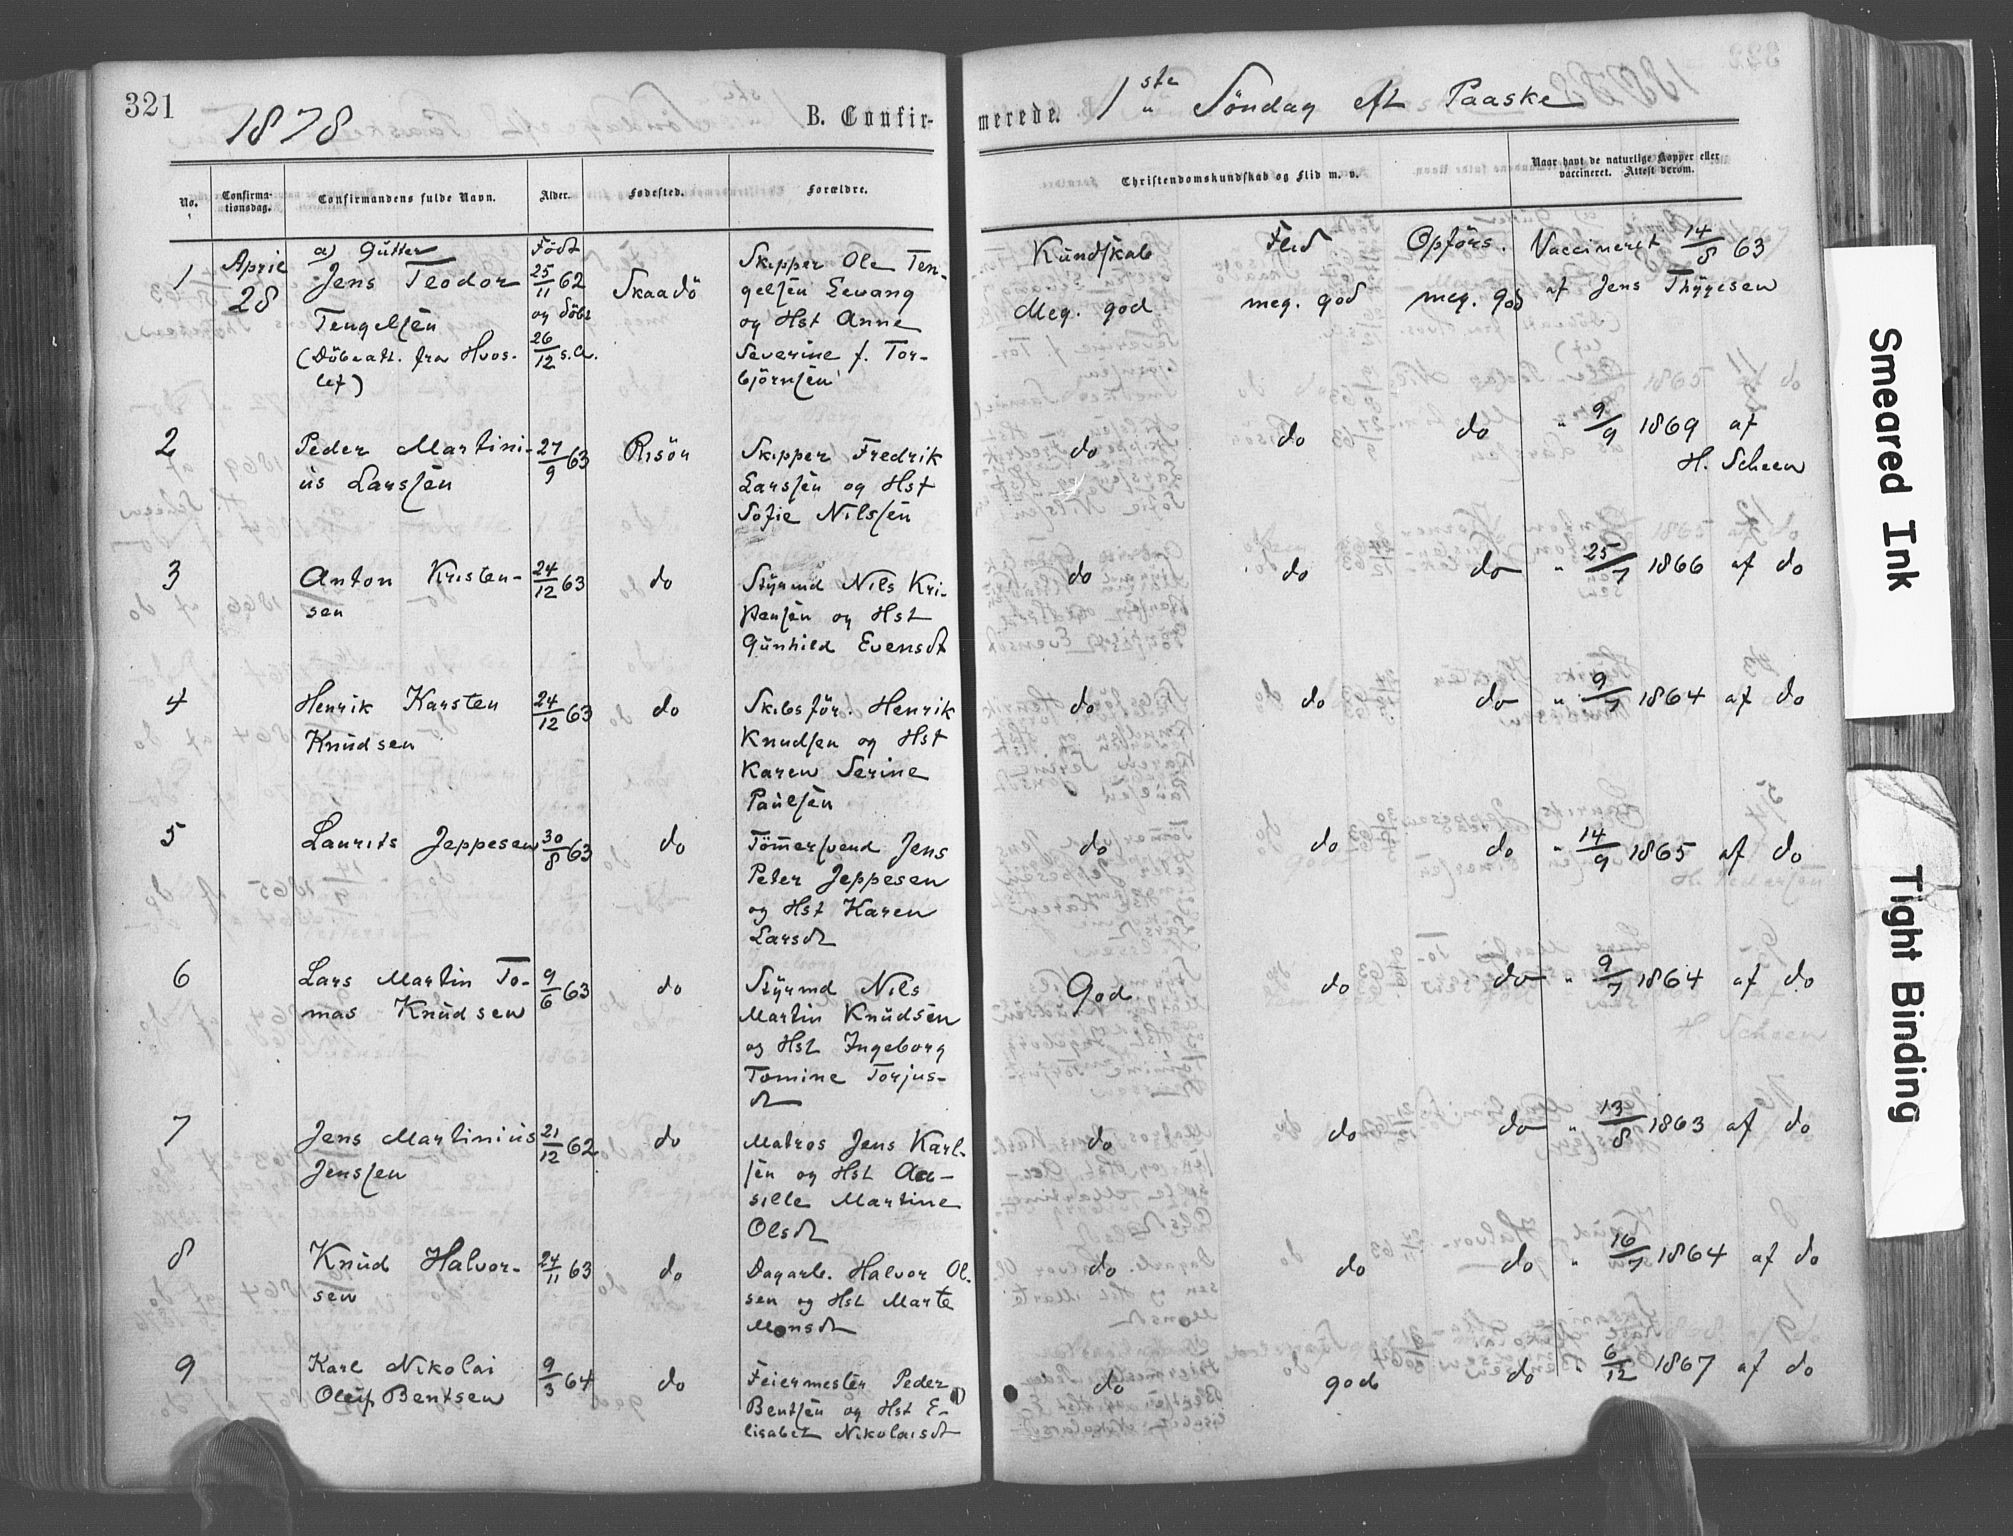 321
1878
B. Confir-
merede.
1ste Söndag eft Paaske
No.
Confirma-
tionsdag.
Confirmandens fulde Navn.
Alder.
Fødested.
Forældre.
Christendomskundskab og Flid m. v.
Naar havt de naturlige Kopper eller
vaccineret. Attest derom.
1
April
28
a) Gutter
Jens Teodor
Tengelsen
(Döbeatt. fra Hvos-
lef)
Födt
25/11 62
og döbt
26/12 s.a.
Skaadö
Skipper Ole Ten-
gelsen Levang
og Hst Anne
Severine f. Tor-
björnsen
Kundskab
Meg. god
Flid
meg. god
Opförs.
meg. god
Vaccineret 14/8 63
af Jens Thygesen
2
Peder Martini-
us Larssen
27/9 63
Risör
Skipper Fredrik
Larssen og Hst
Sofie Nilssen
do
do
do
" 9/9 1869 af
H. Scheen
3
Anton Kristen-
sen
24/12 63
do
Styrmd Nils Kri-
stensen og Hst
Gunhild Evensdt
do
do
do
" 25/7 1866 af do
4
Henrik Karsten
Knudsen
24/12 63
do
Skibsför. Henrik
Knudsen og Hst
Karen Serine
Paulsen
do
do
do
" 9/7 1864 af do
5
Laurits Jeppesen
30/8 63
do
Tömersvend Jens
Peter Jeppesen
og Hst Karen
Larsdt
do
do
do
" 14/9 1865 af do
6
Lars Martin To-
mas Knudsen
9/6 63
do
Styrmd Nils
Martin Knudsen
og Hst Ingeborg
Tomine Torjus-
dt
God
do
do
" 9/7 1864 af do
7
Jens Martinius
Jenssen
21/12 62
do
Matros Jens Karl-
sen og Hst Aa-
sille Martine
Olsdt
do
do
do
" 13/8 1863 af do
8
Knud Halvor-
sen
24/11 63
do
Dagarb. Halvor Ol-
sen og Hst Marte
Monsdt
do
do
do
" 16/7 1864 af do
9
Karl Nikolai
Oluf Bentsen
9/3 64
do
Feiermester Peder
Bentsen og Hst E-
lisabet Nikolaisdt
do
god
do
" 6/12 1867 af do
Smeared Ink
Tight Binding